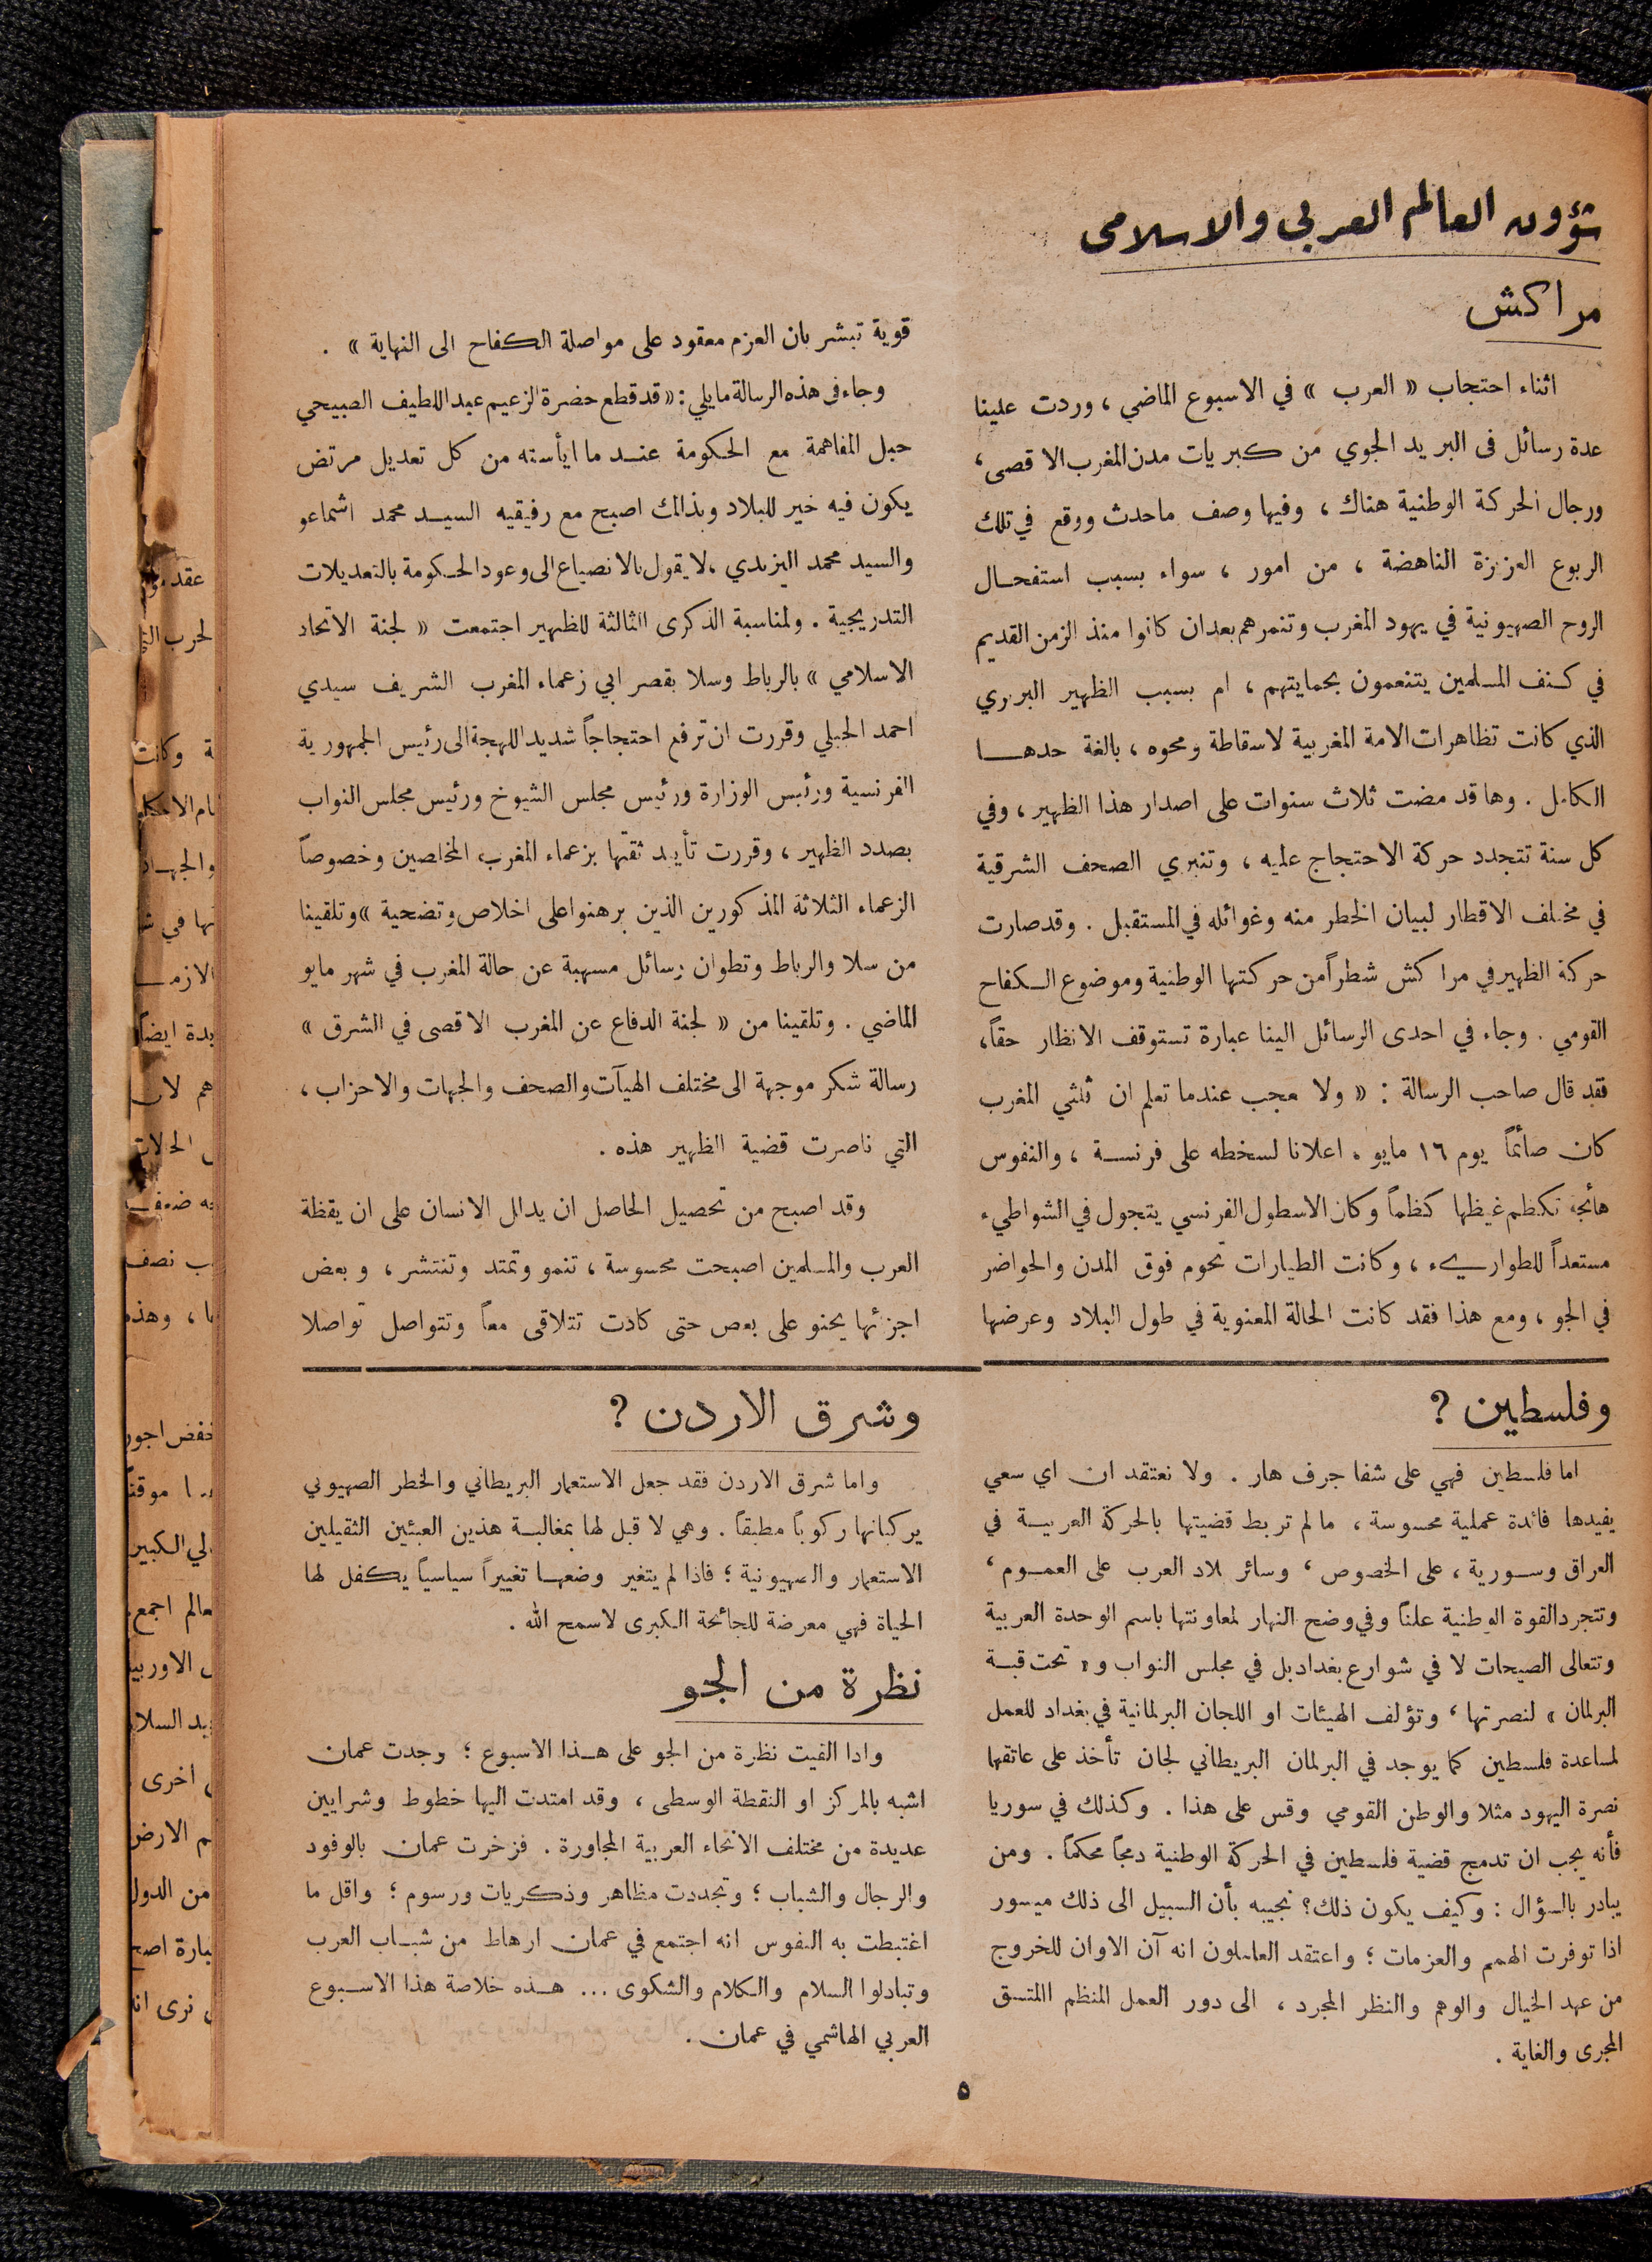 شؤون العالم العربي والاسلامى
مراكش
اثناء احتجاب « العرب » في الاسبوع الماضي ، وردت علينا
عدة رسائل فى البريد الجوي من كبريات مدن المغرب الاقصى ،
ورجال الحركة الوطنية هناك ، وفيها وصف ماحدث ووقع في تلك
الربوع العزيزة الناهضة ، من امور ، سواء بسبب استفحال
الروح الصهيونية في يهود المغرب وتنمرهم بعدان كانوا منذ الزمن القديم
في كنف المسلمين يتنعمون بحمايتهم ، ام بسبب الظهير البربري
الذي كانت تظاهرات الامة المغربية لاسقاطة ومحوه ، بالغة حدها
الكامل . وهاقد مضت ثلاث سنوات على اصدار هذا الظهير ، وفي
كل سنة تتجدد حركة الاحتجاج عليه ، وتنبري الصحف الشرقية
في مختلف الاقطار لبيان الخطر منه وغوائله في المستقبل . وقدصارت
حركة الظهير في مراكش شطراً من حركتها الوطنية وموضوع الكفاح
القومي . وجاء في احدى الرسائل الينا عبارة تستوقف الانظار حقاً ،
فقد قال صاحب الرسالة : « ولا عجب عندما تعلم ان ثلثي المغرب
كان صائماً يوم ١٦ مايو . اعلانا لسخطه على فرنسة ، والنفوس
هائجة تكظم غيظها كظماً وكان الاسطول الفرنسي يتجول في الشواطيء
مستعداً للطواريء ، وكانت الطيارات تحوم فوق المدن والحواضر
في الجو ، ومع هذا فقد كانت الحالة المعنوية في طول البلاد وعرضها
قوية تبشر بان العزم معقود على مواصلة الكفاح الى النهاية » .
وجاء فى هذه الرسالة مايلي : « قد قطع حضرة الزعيم عبد اللطيف الصبيحي
حبل المفاهمة مع الحكومة عند ما ايأسته من كل تعديل مرتض
يكون فيه خير للبلاد وبذالك اصبح مع رفيقيه السيد محمد اشماعو
والسيد محمد اليزيدي ، لا يقول بالانصياع الى وعود الحكومة بالتعديلات
التدريجية . ولمناسبة الذكرى الثالثة للظهير اجتمعت « لجنة الاتحاد
الاسلامي » بالرباط وسلا بقصر ابي زعماء المغرب الشريف سيدي
احمد الجبلي وقررت ان ترفع احتجاجاً شديد اللهجة الى رئيس الجمهورية
الفرنسية ورئيس الوزارة ورئيس مجلس الشيوخ ورئيس مجلس النواب
بصدد الظهير ، وقررت تأييد ثقتها بزعماء المغرب المخلصين وخصوصاً
الزعماء الثلاثة المذكورين الذين برهنوا على اخلاص وتضحية » وتلقينا
من سلا والرباط وتطوان رسائل مسهبة عن حالة المغرب في شهر مايو
الماضي . وتلقينا من « لجنة الدفاع عن المغرب الاقصى في الشرق »
رسالة شكر موجهة الى مختلف الهيآت والصحف والجهات والاحزاب ،
التي ناصرت قضية الظهير هذه .
وقد اصبح من تحصيل الحاصل ان يدلل الانسان على ان يقظة
العرب والمسلمين اصبحت محسوسة ، تنمو وتمتد وتنتشر ، وبعض
اجزئها يحنو على بعض حتى كادت تتلاقى معاً وتتواصل تواصلا
وفلسطين ؟
اما فلسطين فهي على شفا جرف هار . ولا نعتقد ان اي سعي
يفيدها فائدة عملية محسوسة ، مالم تربط قضيتها بالحركة العربية في
العراق وسورية ، على الخصوص ، وسائر بلاد العرب على العموم ،
وتتجرد القوة الوطنية علناً وفي وضح النهار لمعاونتها باسم الوحدة العربية
وتتعالى الصيحات لا في شوارع بغداد بل في مجلس النواب و « تحت قبة
البرلمان » لنصرتها ، وتؤلف الهيئات او اللجان البرلمانية في بغداد للعمل
لمساعدة فلسطين كما يوجد في البرلمان البريطاني لجان تأخذ على عاتقها
نصرة اليهود مثلا والوطن القومي وقس على هذا . وكذلك في سوريا
فأنه يجب ان تدمج قضية فلسطين في الحركة الوطنية دمجاً محكماً . ومن
يبادر بالسؤال : وكيف يكون ذلك؟ نجيبه بأن السبيل الى ذلك ميسور
اذا توفرت الهمم والعزمات ؛ واعتقد العاملون انه آن الاوان للخروج
من عهد الخيال والوهم والنظر المجرد ، الى دور العمل المنظم المتسق
المجرى والغاية .
وشرق الاردن ؟
واما شرق الاردن فقد جعل الاستعمار البريطاني والخطر الصهيوني
يركبانها ركوباً مطبقاً . وهي لا قبل لها بمغالبة هذين العبئين الثقيلين
الاستعمار والصهيونية ؛ فاذا لم يتغير وضعها تغييراً سياسياً يكفل لها
الحياة فهي معرضة للجائحة الكبرى لاسمح الله .
نظرة من الجو
واذا القيت نظرة من الجو على هذا الاسبوع ؛ وجدت عمان
اشبه بالمركز او النقطة الوسطى ، وقد امتدت اليها خطوط وشرايين
عديدة من مختلف الانحاء العربية المجاورة . فزخرت عمان بالوفود
والرجال والشباب ؛ وتجددت مظاهر وذكريات ورسوم ؛ واقل ما
اغتبطت به النفوس انه اجتمع في عمان ارهاط من شباب العرب
وتبادلوا السلام والكلام والشكوى ... هذه خلاصة هذا الاسبوع
العربي الهاشمي في عمان .
٥